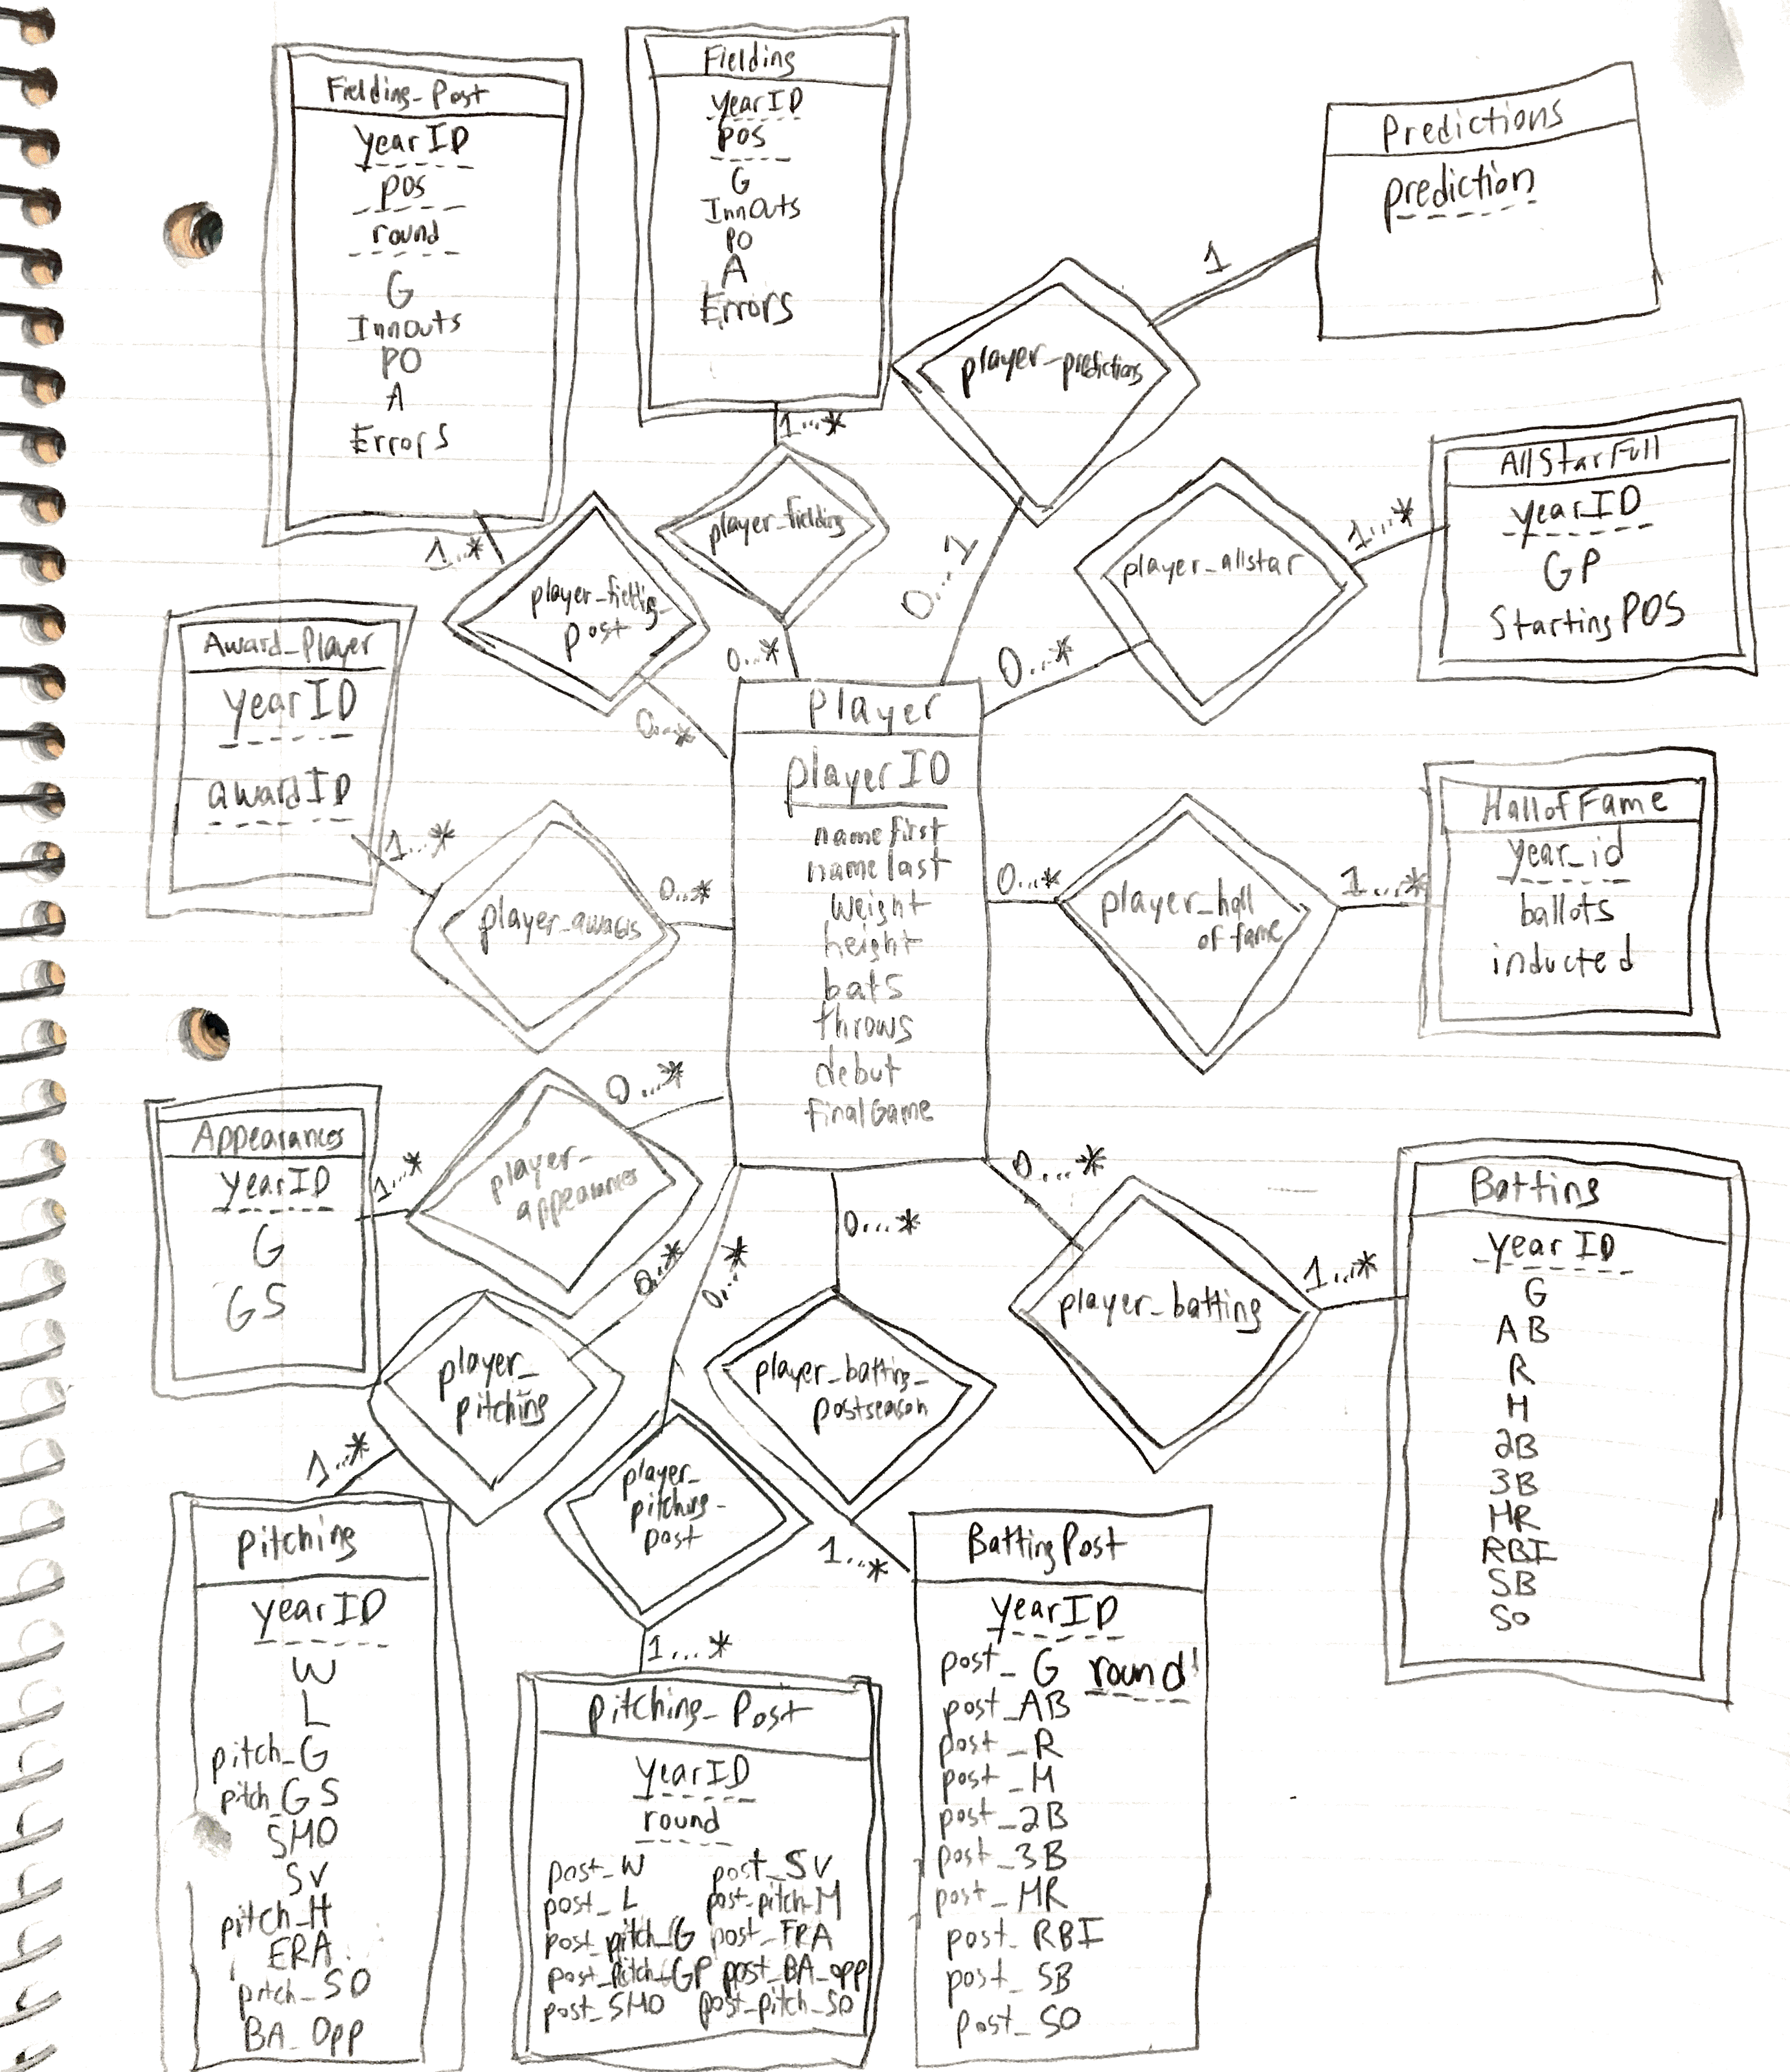 Fielding_Post
yearID
POS
round
G
InnOuts
PO
A
Errors
Fielding
yearID
POS
G
InnOuts
PO
A
Errors
Predictions
prediction
1
player_predictions
0...1
1...*
player_fielding
0...*
1...*
player_fielding_
post
0...*
AllStarFull
yearID
GP
StartingPOS
1...*
player_allstar
0...*
Award_Player
yearID
awardID
1...*
player_awards
0...*
Player
playerID
namefirst
namelast
weight
height
bats
throws
debut
finalGame
HallofFame
year_id
ballots
inducted
0...*
player_hall
of fame
1...*
Appearances
yearID
G
GS
1...*
player_
appearances
0...*
Batting
yearID
G
AB
R
H
2B
3B
HR
RBI
SB
SO
0...*
player_batting
1...*
0...*
player_
pitching
1...*
0...*
player_
pitching_
post
1...*
0...*
player_batting_
postseason
1...*
Pitching
yearID
W
L
pitch_G
pitch_GS
SHO
SV
pitch_H
ERA
pitch_SO
BA_Opp
Pitching_Post
yearID
round
post_W post_SV
post_L post_pitch_H
post_pitch_G post_ERA
post_pitch_GP post_BA_opp
post_SHO post_pitch_SO
BattingPost
yearID
post_G round
post_AB
post_R
post_H
post_2B
post_3B
post_HR
post_RBI
post_SB
post_SO